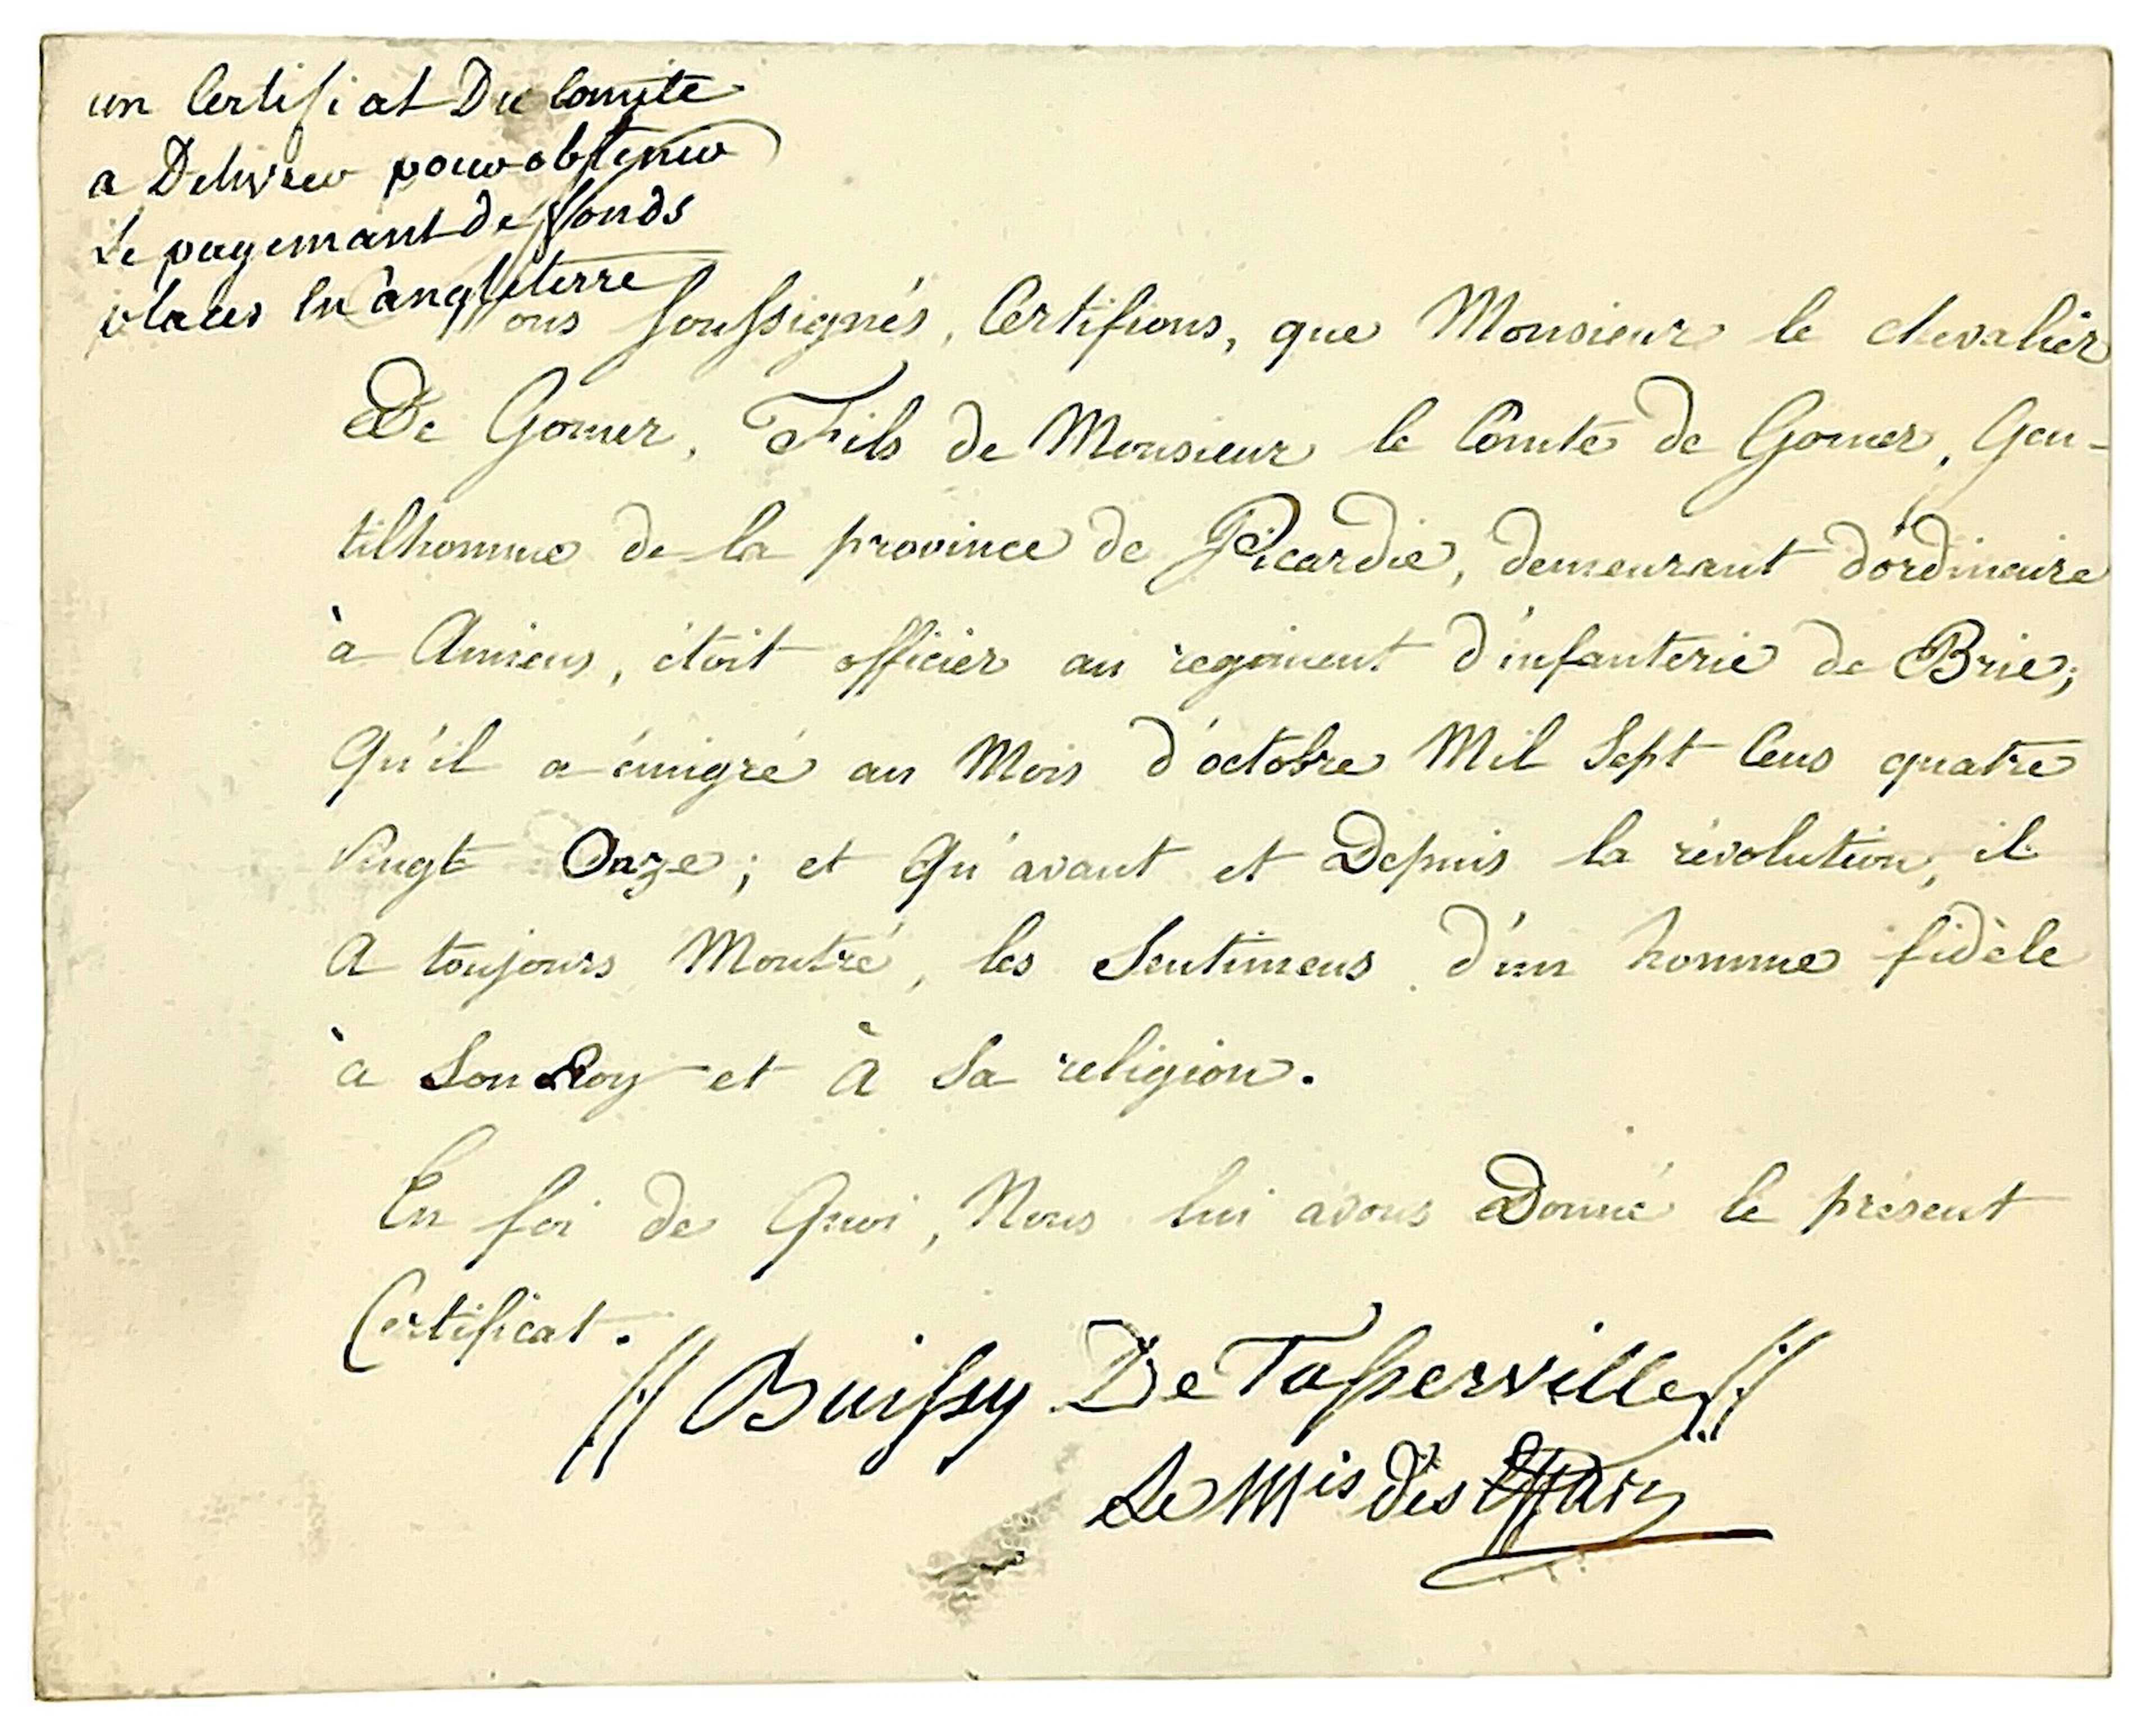 un Certifiat Du Comite
a Delivrer pour obtenir
Le payemant de fonds
places en angleterre
Nous soussignés, Certifions, que Monsieur le chevalier
De Gomer, Fils de Monsieur le Comte de Gomer, Gen-
tilhomme de la province de Picardie, demeurant d'ordinaire
à Amiens, étoit officier au regiment d'infanterie de Brie;
Qu'il a émigré au Mois d'octobre Mil Sept Cens quatre
vingt Onze; et Qu'avant et Depuis la révolution, il
A toujours Montré, les Sentimens d'un homme fidèle
à Son Roy et À Sa religion.
En foi de Quoi, Nous lui avons Donné le présent
Certificat.
Buissy De
Le Mis des